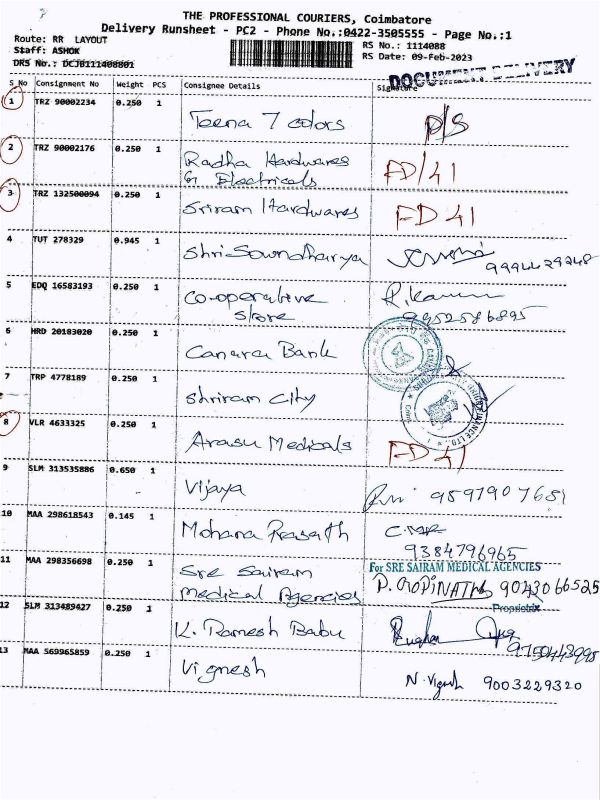 THE PROFESSIONAL COURIERS, Coimbatore
Delivery Runsheet - PC2 - Phone No.:0422-3505555 - Page No.:1
Route: RR LAYOUT
RS No.: 1114088
Staff: ASHOK
RS Date: 09-Feb-2023
DRS No.: DCJB111408801
DOCUMENT DELIVERY
S No Consignment No Weight PCS Consignee Details Signature
1 TRZ 90002234 0.250 1 Teena 7 colors D/S
2 TRZ 90002176 0.250 1 Radha Hardwares FD/41
& Electricals
3 TRZ 132500094 0.250 1 Sriram Hardwares FD 41
4 TUT 278329 0.945 1 Shri Soundharya
5 EDQ 16583193 0.250 1 Co-operative
Store 9952586895
6 HRD 20183020 0.250 1 Canara Bank
7 TRP 4778189 0.250 1 Shriram City
8 VLR 4633325 0.250 1 Arasu Medicals FD 41
9 SLM 313535886 0.650 1 Vijaya
10 MAA 298618543 0.145 1 Mohana Prasath
9384796965
11 MAA 298356698 0.250 1 Sre Sairam For SRE SAIRAM MEDICAL AGENCIES
Medical Agencies 9043066525
Proprietrix
12 SLM 313489427 0.250 1 K. Ramesh Babu
13 MAA 569965859 0.250 1 Vignesh N. Vignesh 9003229320